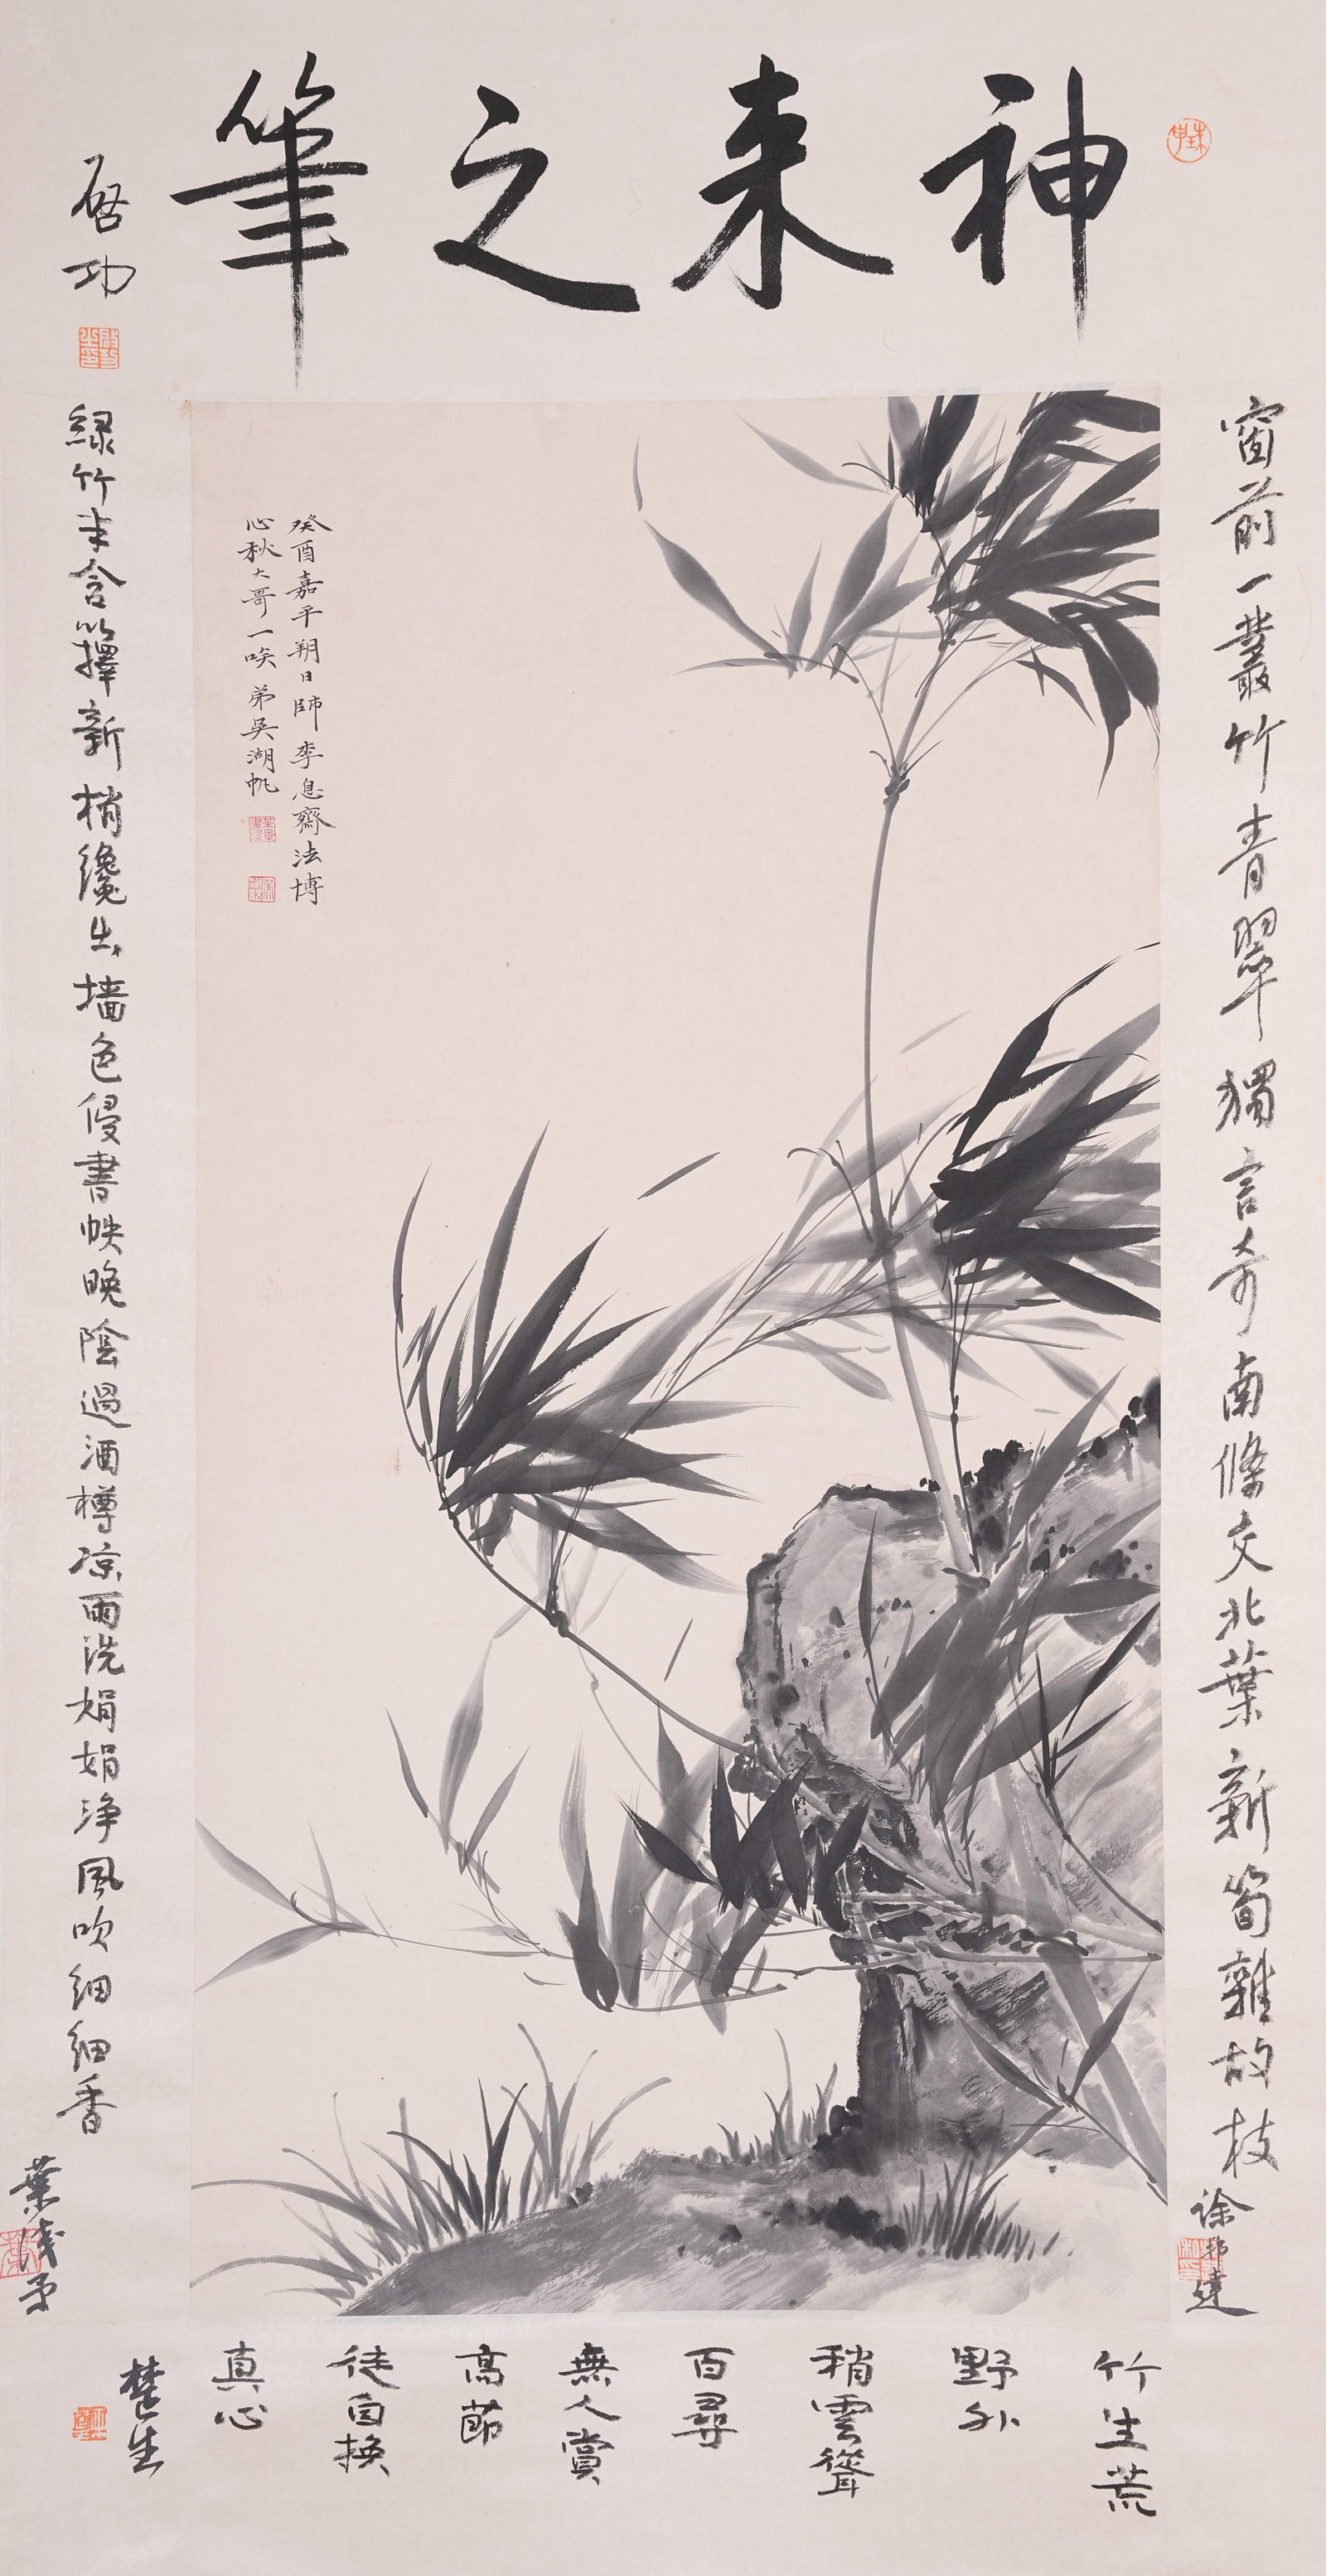 神来之筆
啓功
窗前一叢竹青翠獨言奇南條交北葉新筍雜故枝
徐邦達
癸酉嘉平朔日師李息齋法博
心秋大哥一咲 弟吳湖帆
綠竹半含籜新梢纔出墙色侵書帙晚陰過酒樽凉雨洗娟娟净風吹細細香
葉淺予
竹生荒
野外
稍雲聳
百尋
無人賞
高節
徒自換
真心
楚生